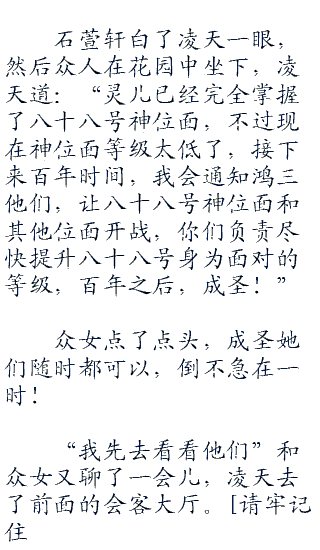 石萱轩白了凌天一眼，
然后众人在花园中坐下，凌
天道：“灵儿已经完全掌握
了八十八号神位面，不过现
在神位面等级太低了，接下
来百年时间，我会通知鸿三
他们，让八十八号神位面和
其他位面开战，你们负责尽
快提升八十八号身为面对的
等级，百年之后，成圣！”
众女点了点头，成圣她
们随时都可以，倒不急在一
时！
“我先去看看他们”和
众女又聊了一会儿，凌天去
了前面的会客大厅。[请牢记
住